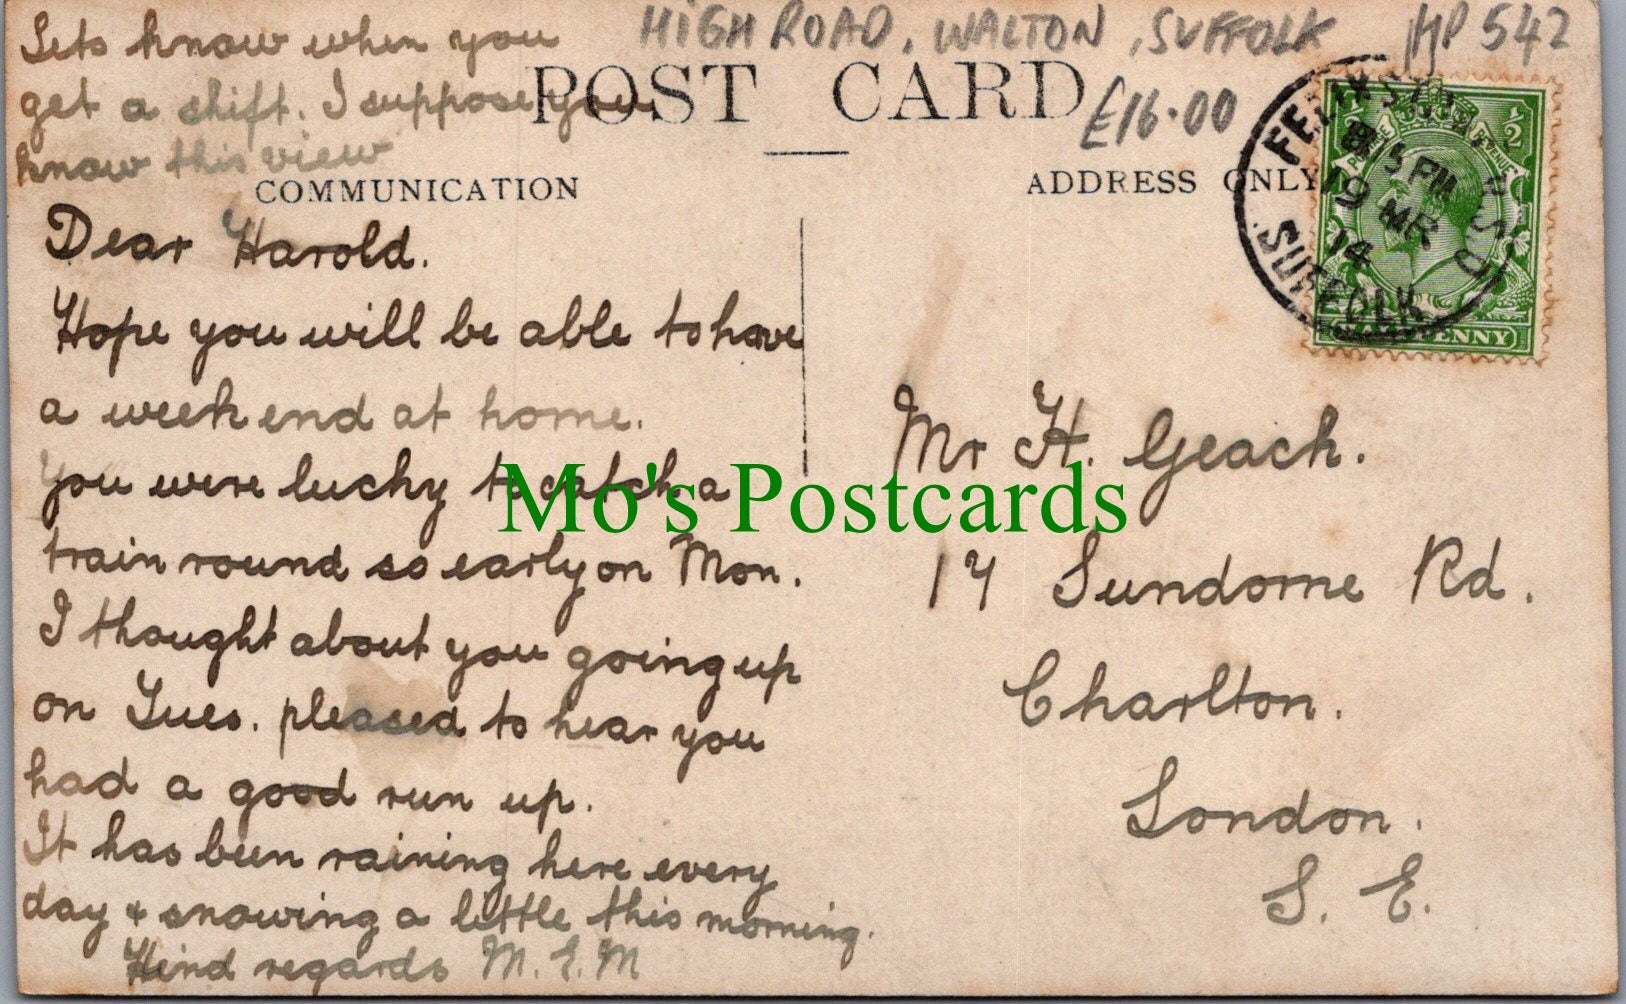 Lets know when you
get a shift. I suppose you
know this view
HIGH ROAD, WALTON, SUFFOLK
HP 542
£16.00
POST CARD
COMMUNICATION
ADDRESS ONLY
FELIXSTOWE
8.15 PM
19 MR
14
SUFFOLK
POSTAGE
REVENUE
1/2
HALFPENNY
Dear Harold.
Hope you will be able to have
a week end at home.
You were lucky to catch a
train round so early on Mon.
I thought about you going up
on Tues. pleased to hear you
had a good run up.
It has been raining here every
day + snowing a little this morning.
Kind regards M.E.M
Mr H. Geach.
17 Sundorne Rd.
Charlton.
London.
S. E.
Mo's Postcards